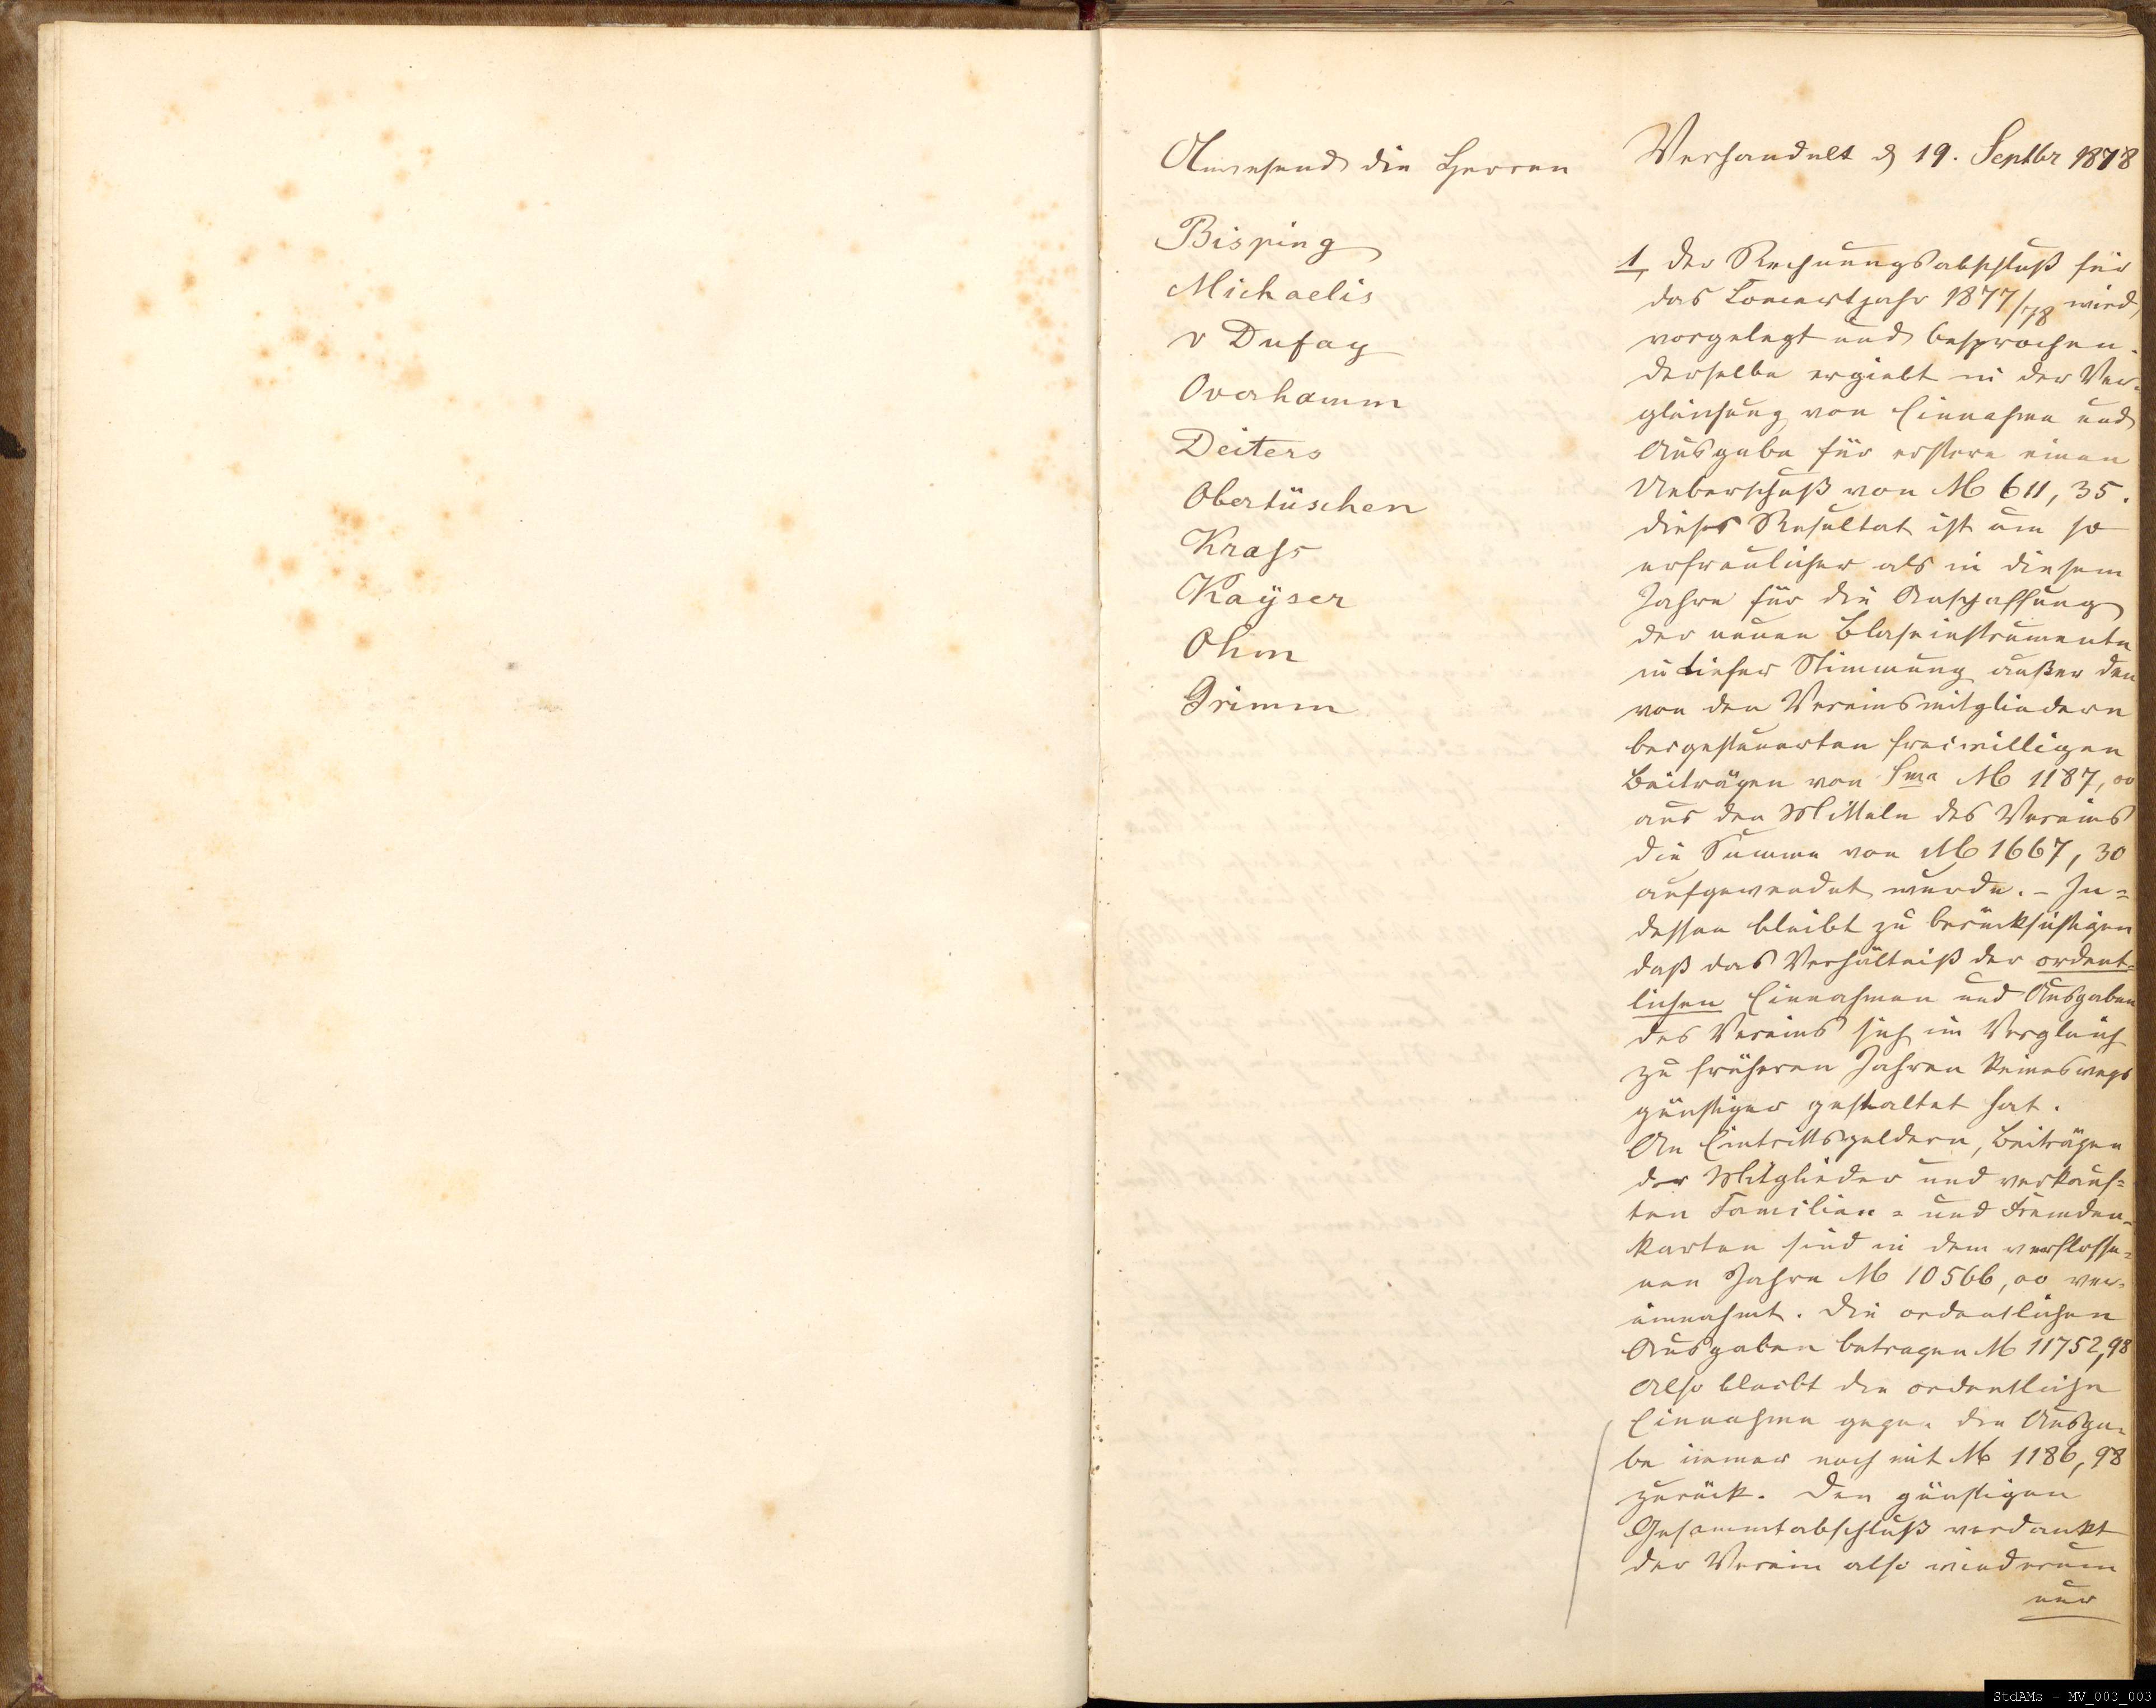 Anwesend die Herren
Bisping
Michaelis
v Dufay
Overhamm
Deiters
Obertüschen
Krass
Kayser
Ohm
Grimm
Verhandelt d 19. Septbr 1878
1, Der Rechnungsabschluß für
das Concertjahr 1877/78 wird
vorgelegt und besprochen.
Derselbe ergiebt in der Ver-
gleichung von Einnahme und
Ausgabe für erstere einen
Ueberschuß von M 611, 35.
Dieses Resultat ist um so
erfreulicher als in diesem
Jahre für die Anschaffung
der neuen Blaseinstrumente
in tiefer Stimmung außer den
von den Vereinsmitgliedern
beigesteuerten freiwilligen
Beiträgen von Sma M 1187, 00
aus den Mitteln des Vereins
die Summe von M 1667, 30
aufgewendet wurde. – In=
dessen bleibt zu berücksichtigen
daß das Verhältniß der ordent=
lichen Einnahmen und Ausgaben
des Vereins sich im Vergleich
zu früheren Jahren keineswegs
günstiger gestaltet hat.
An Eintrittsgeldern, Beiträgen
der Mitglieder und verkauf=
ten Familien= und Fremden=
karten sind in dem verflosse=
nen Jahre M 10566, 00 ver-
einnahmt. Die ordentlichen
Ausgaben betragen M 11752,98
Also bleibt die ordentliche
Einnahme gegen die Ausga-
be immer noch mit M 1186, 98
zurück. Den günstigen
Gesammtabschluß verdankt
der Verein also wiederum
nur
StdAMs - MV_003_003